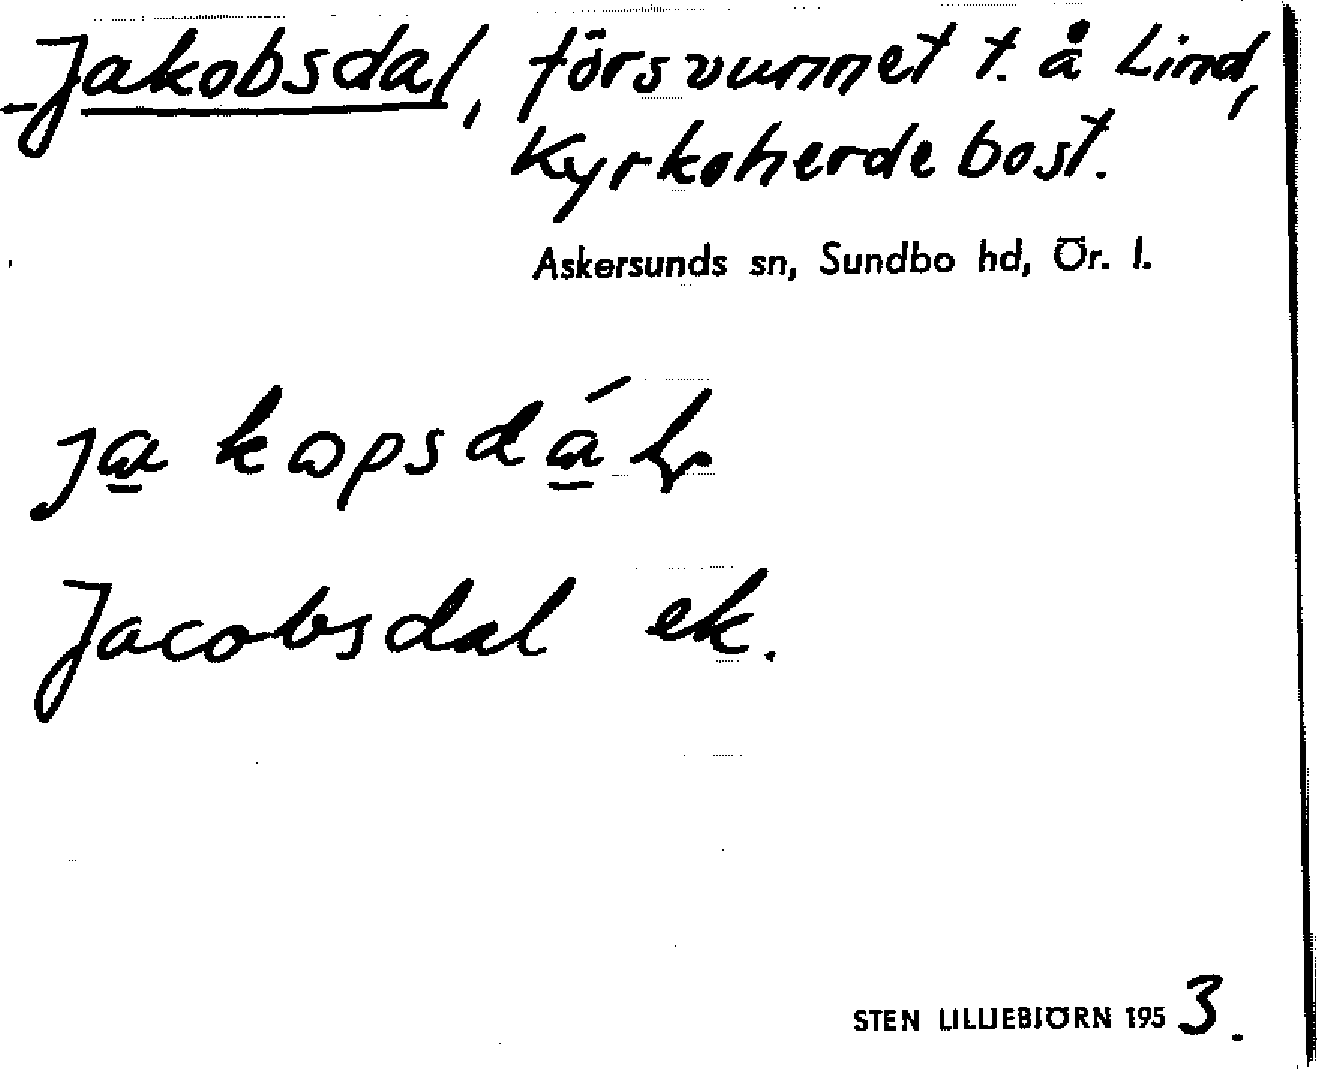 Jakobsdal, försvunnet t. å Lind,
Kyrkoherdebost.
Askersunds sn, Sundbo hd, Ör. l.
Jacobsdal ek.
STEN LILLIEBJÖRN 1953.